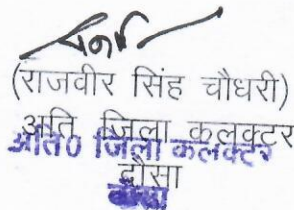 (राजवीर सिंह चौधरी)
अति जिला कलक्टर
अति0 जिला कलक्टर
दौसा
दौसा